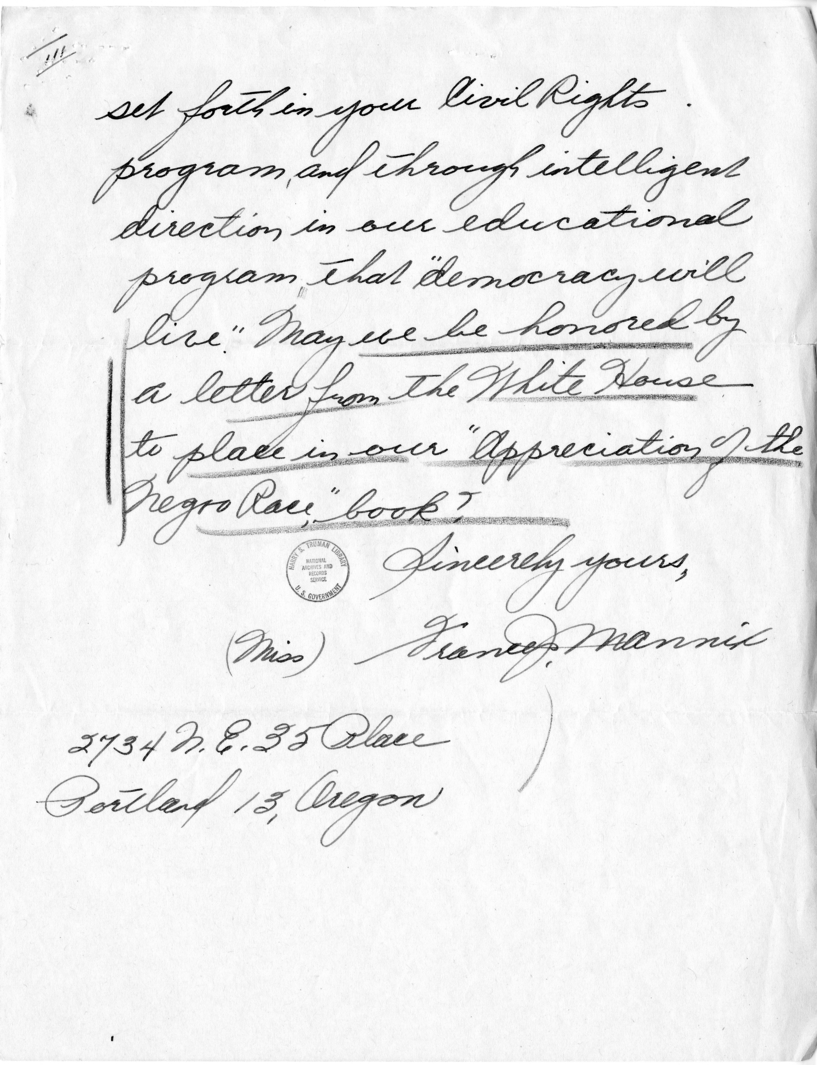 III
set forth in your Civil Rights
program, and through intelligent
direction in our educational
program, that "democracy will
live." May we be honored by
a letter from the White House
to place in our "Appreciation of the
Negro Race," book?
HARRY S. TRUMAN LIBRARY
NATIONAL
ARCHIVES AND
RECORDS
SERVICE
U. S. GOVERNMENT
Sincerely yours,
(Miss) Frances J. Mannix
2734 N. E. 35 Place
Portland 13, Oregon